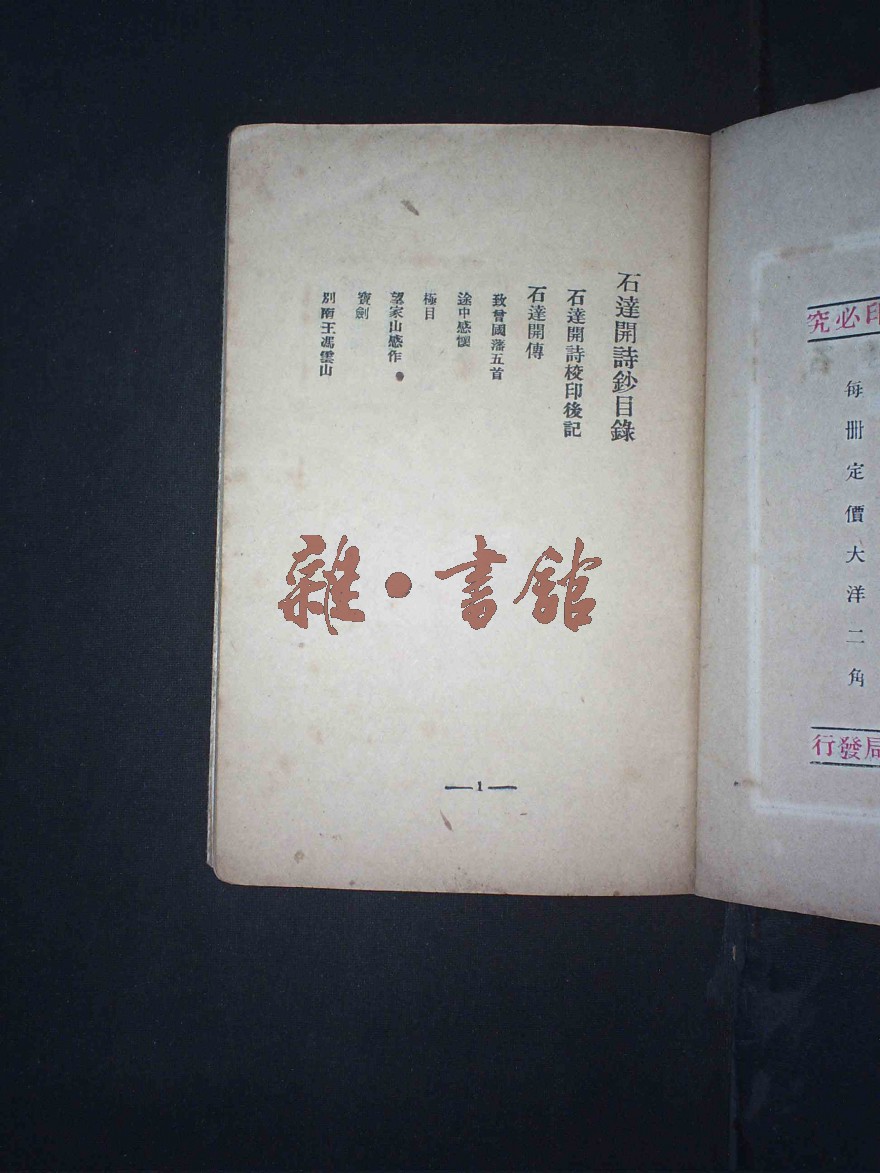 石達開詩鈔目錄
石達開詩校印後記
石達開傳
致曾國藩五首
途中感懷
極目
望家山感作
寶劍
別南王馮雲山
雜·書館
—1—
印必究
每冊定價大洋二角
局發行